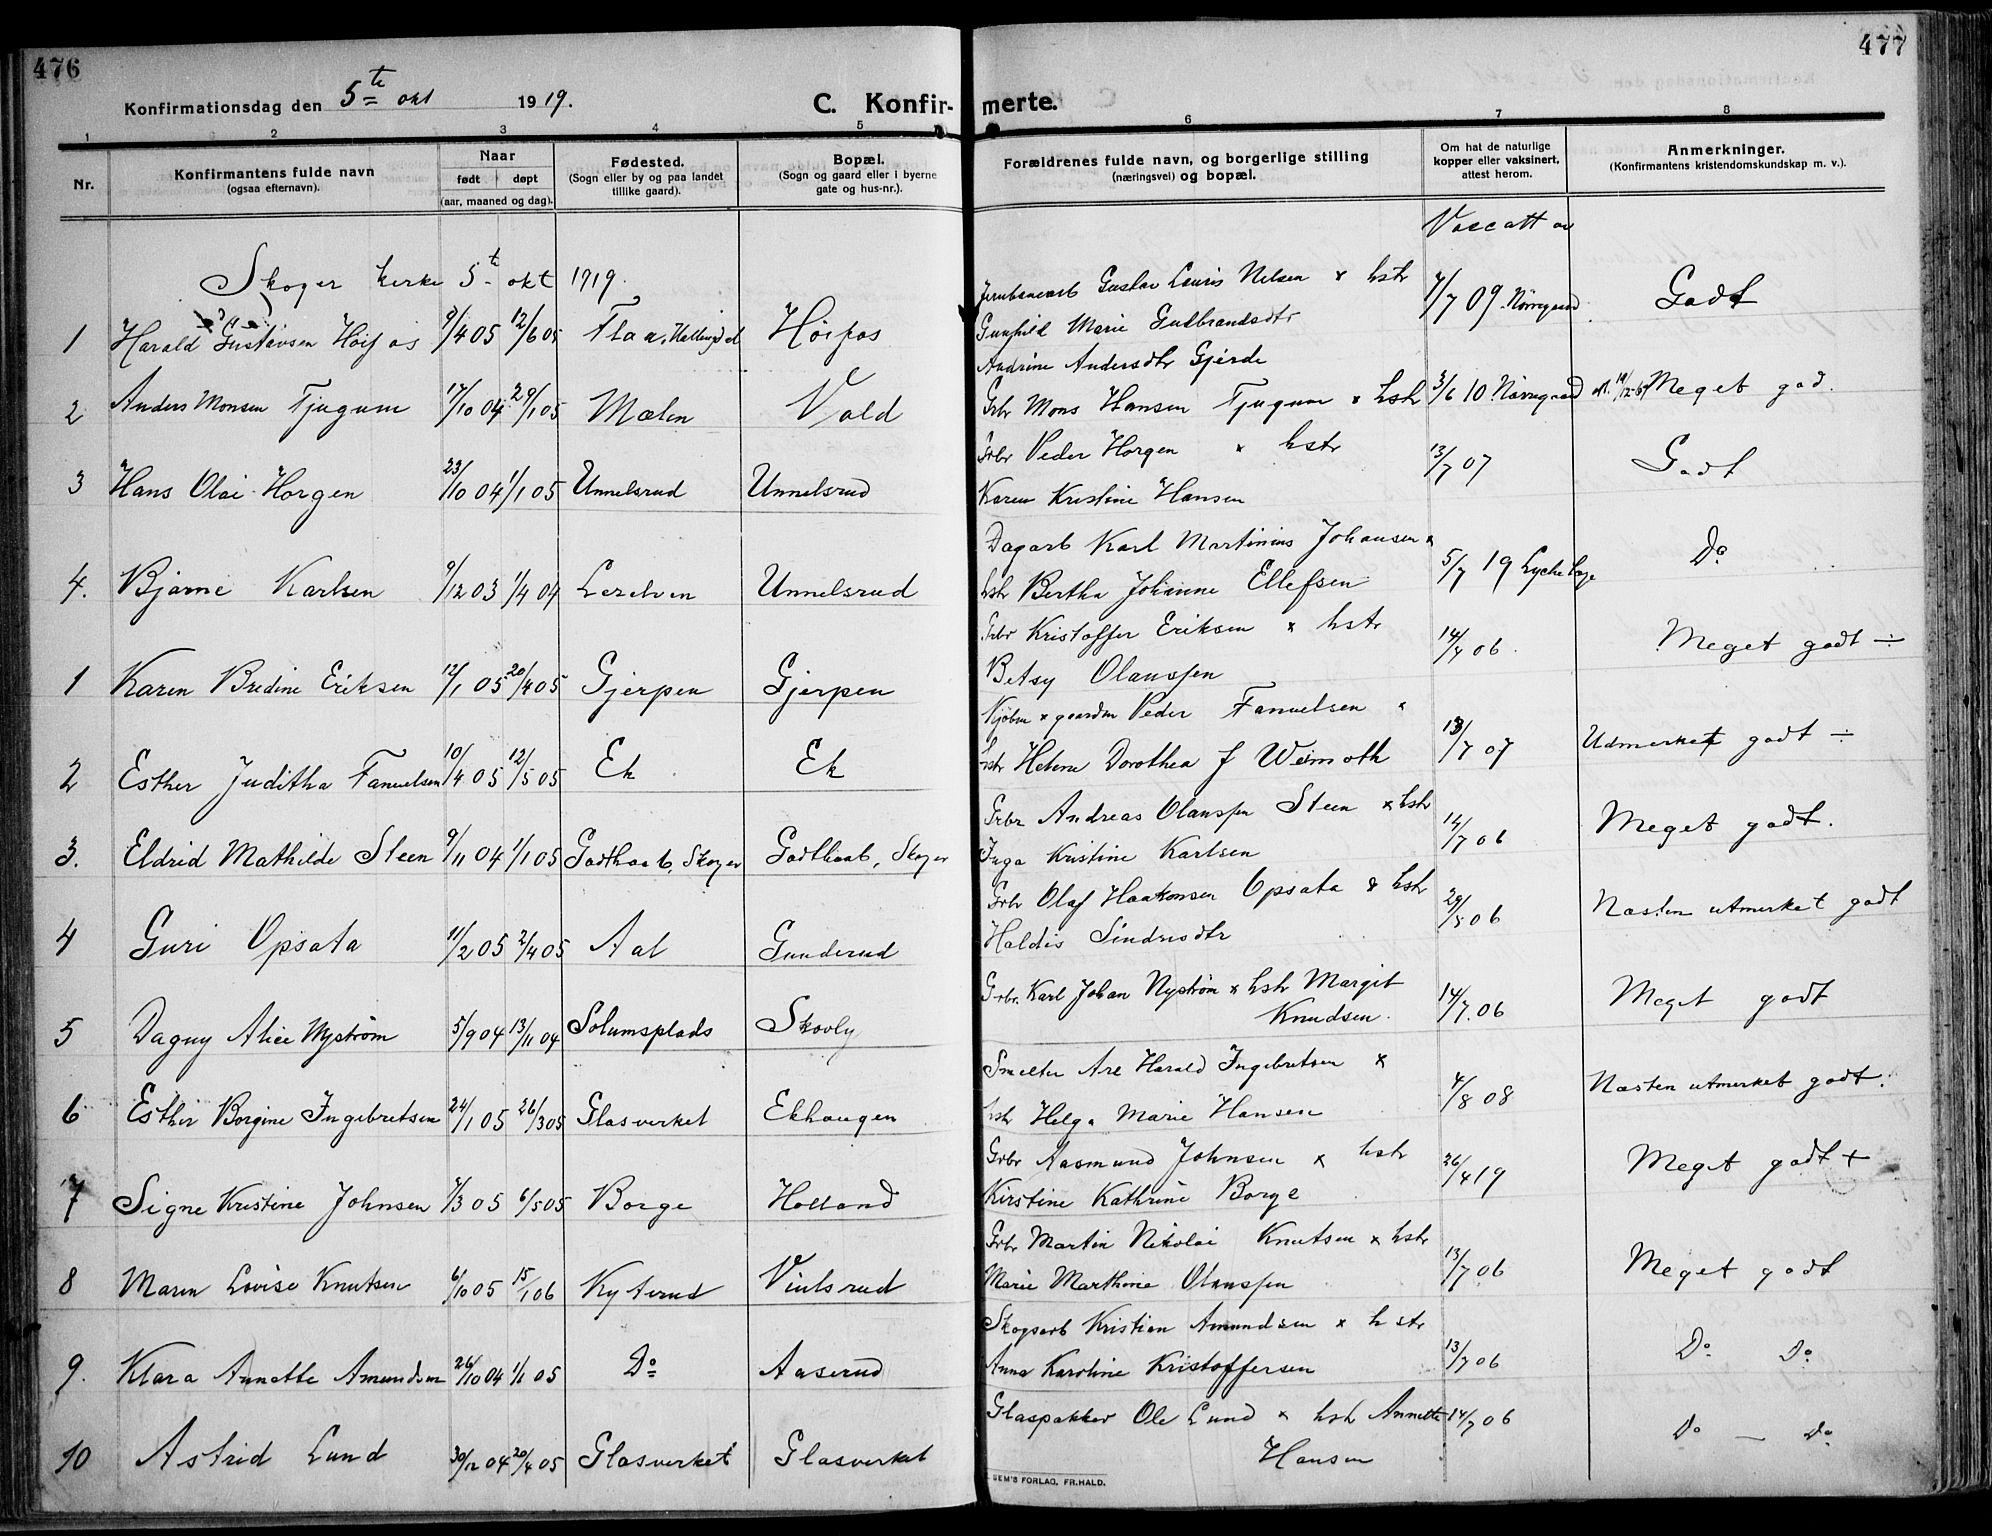 476
477
Konfirmationsdag den 5te okt 1919.
C. Konfirmerte.
1 2 3 4 5 6 7 8
Nr.
Konfirmantens fulde navn
(ogsaa efternavn).
Naar
født døpt
(aar, maaned og dag).
Fødested.
(Sogn eller by og paa landet
tillike gaard).
Bopæl.
(Sogn og gaard eller i byerne
gate og hus-nr.).
Forældrenes fulde navn, og borgerlige stilling
(næringsvei) og bopæl.
Om hat de naturlige
kopper eller vaksinert,
attest herom.
Anmerkninger.
(Konfirmantens kristendomskundskap m. v.).
Vacc att av
Skoger kirke 5te okt 1919.
Gustav Lauris Nilsen x hstr
1 Harald Gustavsen Høifos 9/4 05 12/6 05 Flaa, Hallingdal Høifos
Gunhild Marie Gudbrandsdtr
7/7 09 Nørregaard Godt
Andrine Andersdtr Gjerde
2 Anders Monsen Tjugum 17/10 04 29/1 05 Mælen Vold
Grbr Mons Hansen Tjugum x hstr 3/6 10 Nørregaard Meget god.
3 Hans Olai Horgen 23/10 04 1/1 05 Unnelsrud Unnelsrud
Grbr Peder Horgen x hstr
Karen Kristine Hansen
13/7 07 Godt
4. Bjarne Karlsen 9/12 03 1/4 04 Lerelven Unnelsrud
Dagarb Karl Martinius Johansen x
hstr Bertha Johanne Ellefsen
5/7 19 Lyche Do
1 Karen Bredine Eriksen 12/1 05 20/4 05 Gjerpen Gjerpen
Grbr Kristoffer Eriksen x hstr
Betsy Olaussen
14/7 06. Meget godt ÷
2 Esther Juditha Fanuelsen 10/4 05 12/5 05 Ek Ek
Kjøbm x gaardm Peder Fanuelsen x
hstr Helene Dorothea f Weimoth
13/7 07 Udmerket godt ÷
3. Eldrid Mathilde Steen 9/11 04 1/1 05 Godthaab, Skoger Godthaab, Skoger
Grbr Andreas Olaussen Steen x hstr
Inga Kristine Karlsen
12/7 06 Meget godt.
4 Guri Opsata 11/2 05 2/4 05 Aal Gunderud
Grbr Olaf Haakonsen Opsata & hstr
Haldis Sindresdtr
29/5 06 Næsten utmerket godt
5 Dagny Alice Nystrøm 5/9 04 13/11 04 Solumsplads Skovly
Grbr. Karl Johan Nystrøm x hstr Margit
Knudsen.
14/7 06 Meget godt
6 Esther Borgine Ingebretsen 24/1 05 26/3 05 Glasverket Ekhaugen
Smelter Are Harald Ingebretsen x
hstr Helga Marie Hansen
4/8 08 Næsten utmerket godt.
7 Signe Kristine Johnsen 7/3 05 6/5 05 Borge Holland
Grbr Aasmund Johnsen x hstr
Kirstine Kathrine Borge
26/4 19 Meget godt +
8 Maren Lovise Knutsen 6/10 05 15/1 06 Kyterud Vinlsrud
Grbr Martin Nikolai Knutsen x hstr
Marie Marthine Olaussen
13/7 06 Meget godt
9. Klara Annette Amundsen 26/10 04 1/1 05 Do Aaserud
Skogsarb Kristian Amundsen x hstr
Anna Karoline Kristoffersen
13/7 06 Do Do
10 Astrid Lund 30/12 04 20/4 05 Glasverket Glasverket
Glaspakker Ole Lund x hstr Annette
Hansen
14/7 06 Do — Do
SEM'S FORLAG, FR.HALD.